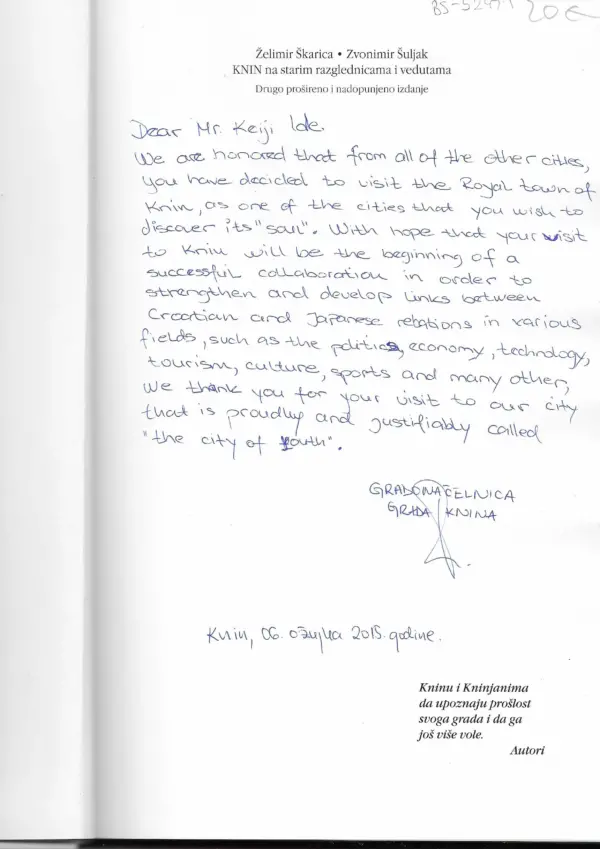 BS-5297
20€
Želimir Škarica • Zvonimir Šuljak
KNIN na starim razglednicama i vedutama
Drugo prošireno i nadopunjeno izdanje
Dear Mr. Keiji Ide.
We are honored that from all of the other cities,
you have decided to visit the Royal town of
Knin, as one of the cities that you wish to
discover its "soul". With hope that your visit
to Knin will be the beginning of a
successful collaboration in order to
strengthen and develop links between
Croatian and Japanese relations in various
fields, such as the politics, economy, technology,
tourism, culture, sports and many other,
We thank you for your visit to our city
that is proudly and justifiably called
"the city of youth".
GRADONAČELNICA
GRADA KNINA
Knin, 06. ožujka 2015. godine.
Kninu i Kninjanima
da upoznaju prošlost
svoga grada i da ga
još više vole.
Autori